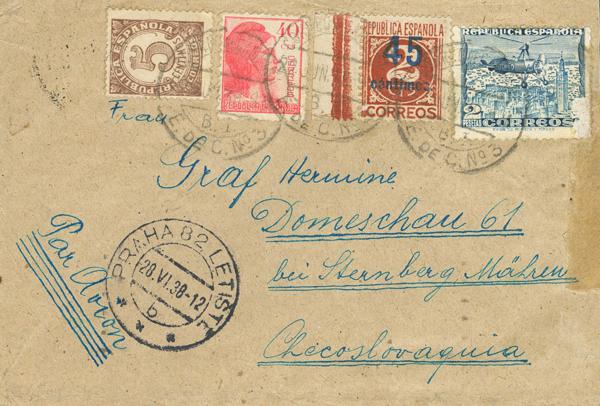 REPUBLICA ESPAÑOLA
5
CENTIMOS
40
REPUBLICA ESPAÑOLA
45
2
centimos.
CORREOS
REPUBLICA ESPAÑOLA
2
PESETAS
CORREOS
E. DE C. Nº 3
E. DE C. Nº 3
E. DE C. Nº 3
Frau
Graf Hermine
Domeschau 61
bei Sternberg, Mähren
Checoslovaquia
Par Avion
PRAHA 82 LETIŠTĚ
28.VI.38-12
b